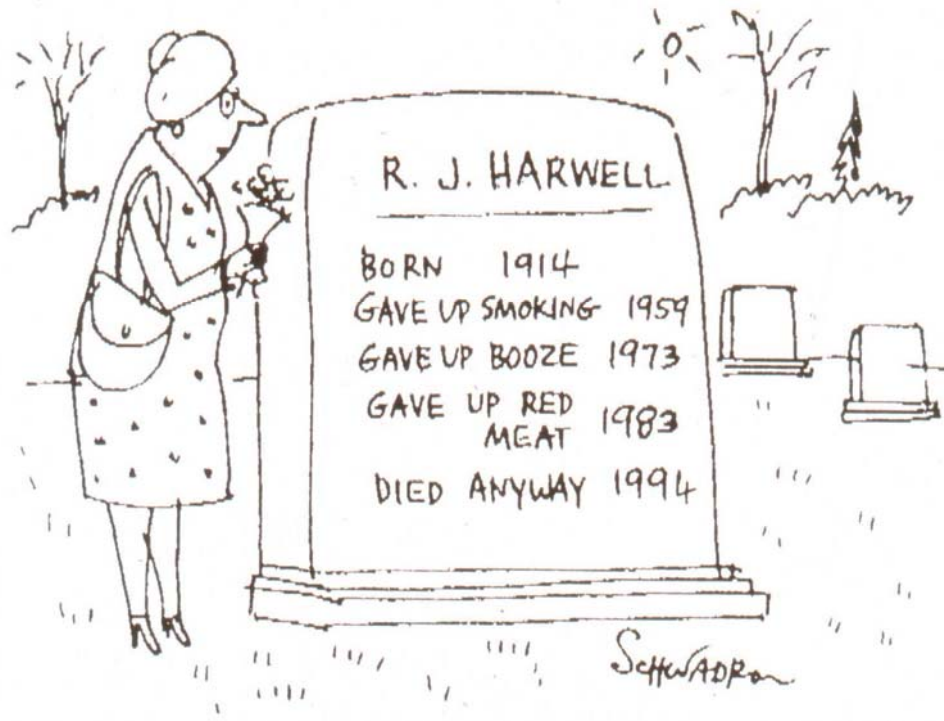 R. J. HARWELL
BORN 1914
GAVE UP SMOKING 1959
GAVE UP BOOZE 1973
GAVE UP RED
MEAT 1983
DIED ANYWAY 1994
SCHWADRON